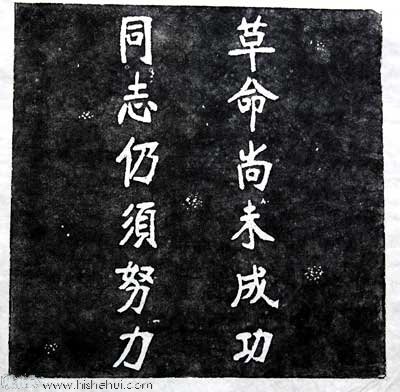 革命尚未成功
同志仍須努力
www.hishehui.com